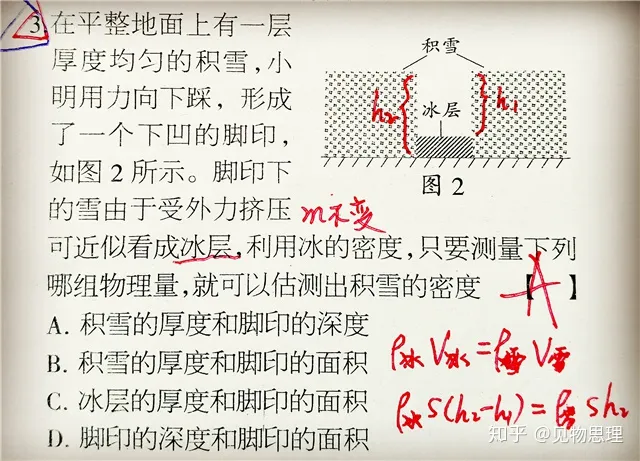 3. 在平整地面上有一层
厚度均匀的积雪,小
明用力向下踩，形成
了一个下凹的脚印,
如图 2 所示。脚印下
的雪由于受外力挤压
m不变
可近似看成冰层,利用冰的密度,只要测量下列
哪组物理量,就可以估测出积雪的密度 【A】
A. 积雪的厚度和脚印的深度
B. 积雪的厚度和脚印的面积
C. 冰层的厚度和脚印的面积
D. 脚印的深度和脚印的面积
积雪
h₂
冰层
h₁
图 2
ρ冰V冰=ρ雪V雪
ρ冰S(h₂-h₁)=ρ雪Sh₂
知乎 @见物思理